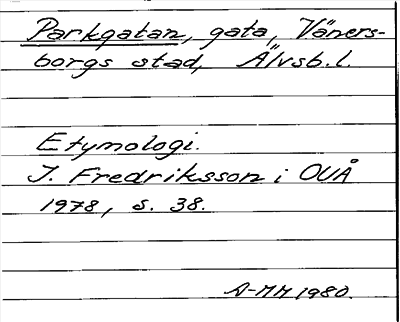 Parkgatan, gata, Väners-
borgs stad, Älvsb.l.
Etymologi.
I. Fredriksson i OUÅ
1978, s. 38.
A-MM 1980.